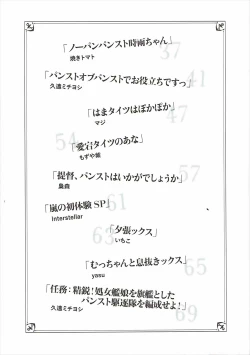 「ノーパンパンスト時雨ちゃん」
焼きトマト
37
「パンストオブパンストでお役立ちですっ」
久遠ミチヨシ
41
「はまタイツはぽかぽか」
マジ
47
「愛宕タイツのあな」
もずや紫
54
「提督、パンストはいかがでしょうか」
臭曲
57
「嵐の初体験SP」
Interstellar
61
「夕張ックス」
いちこ
63
「むっちゃんと息抜きックス」
yasu
65
「任務：精鋭！処女艦娘を旗艦とした
パンスト駆逐隊を編成せよ！」
久遠ミチヨシ
69